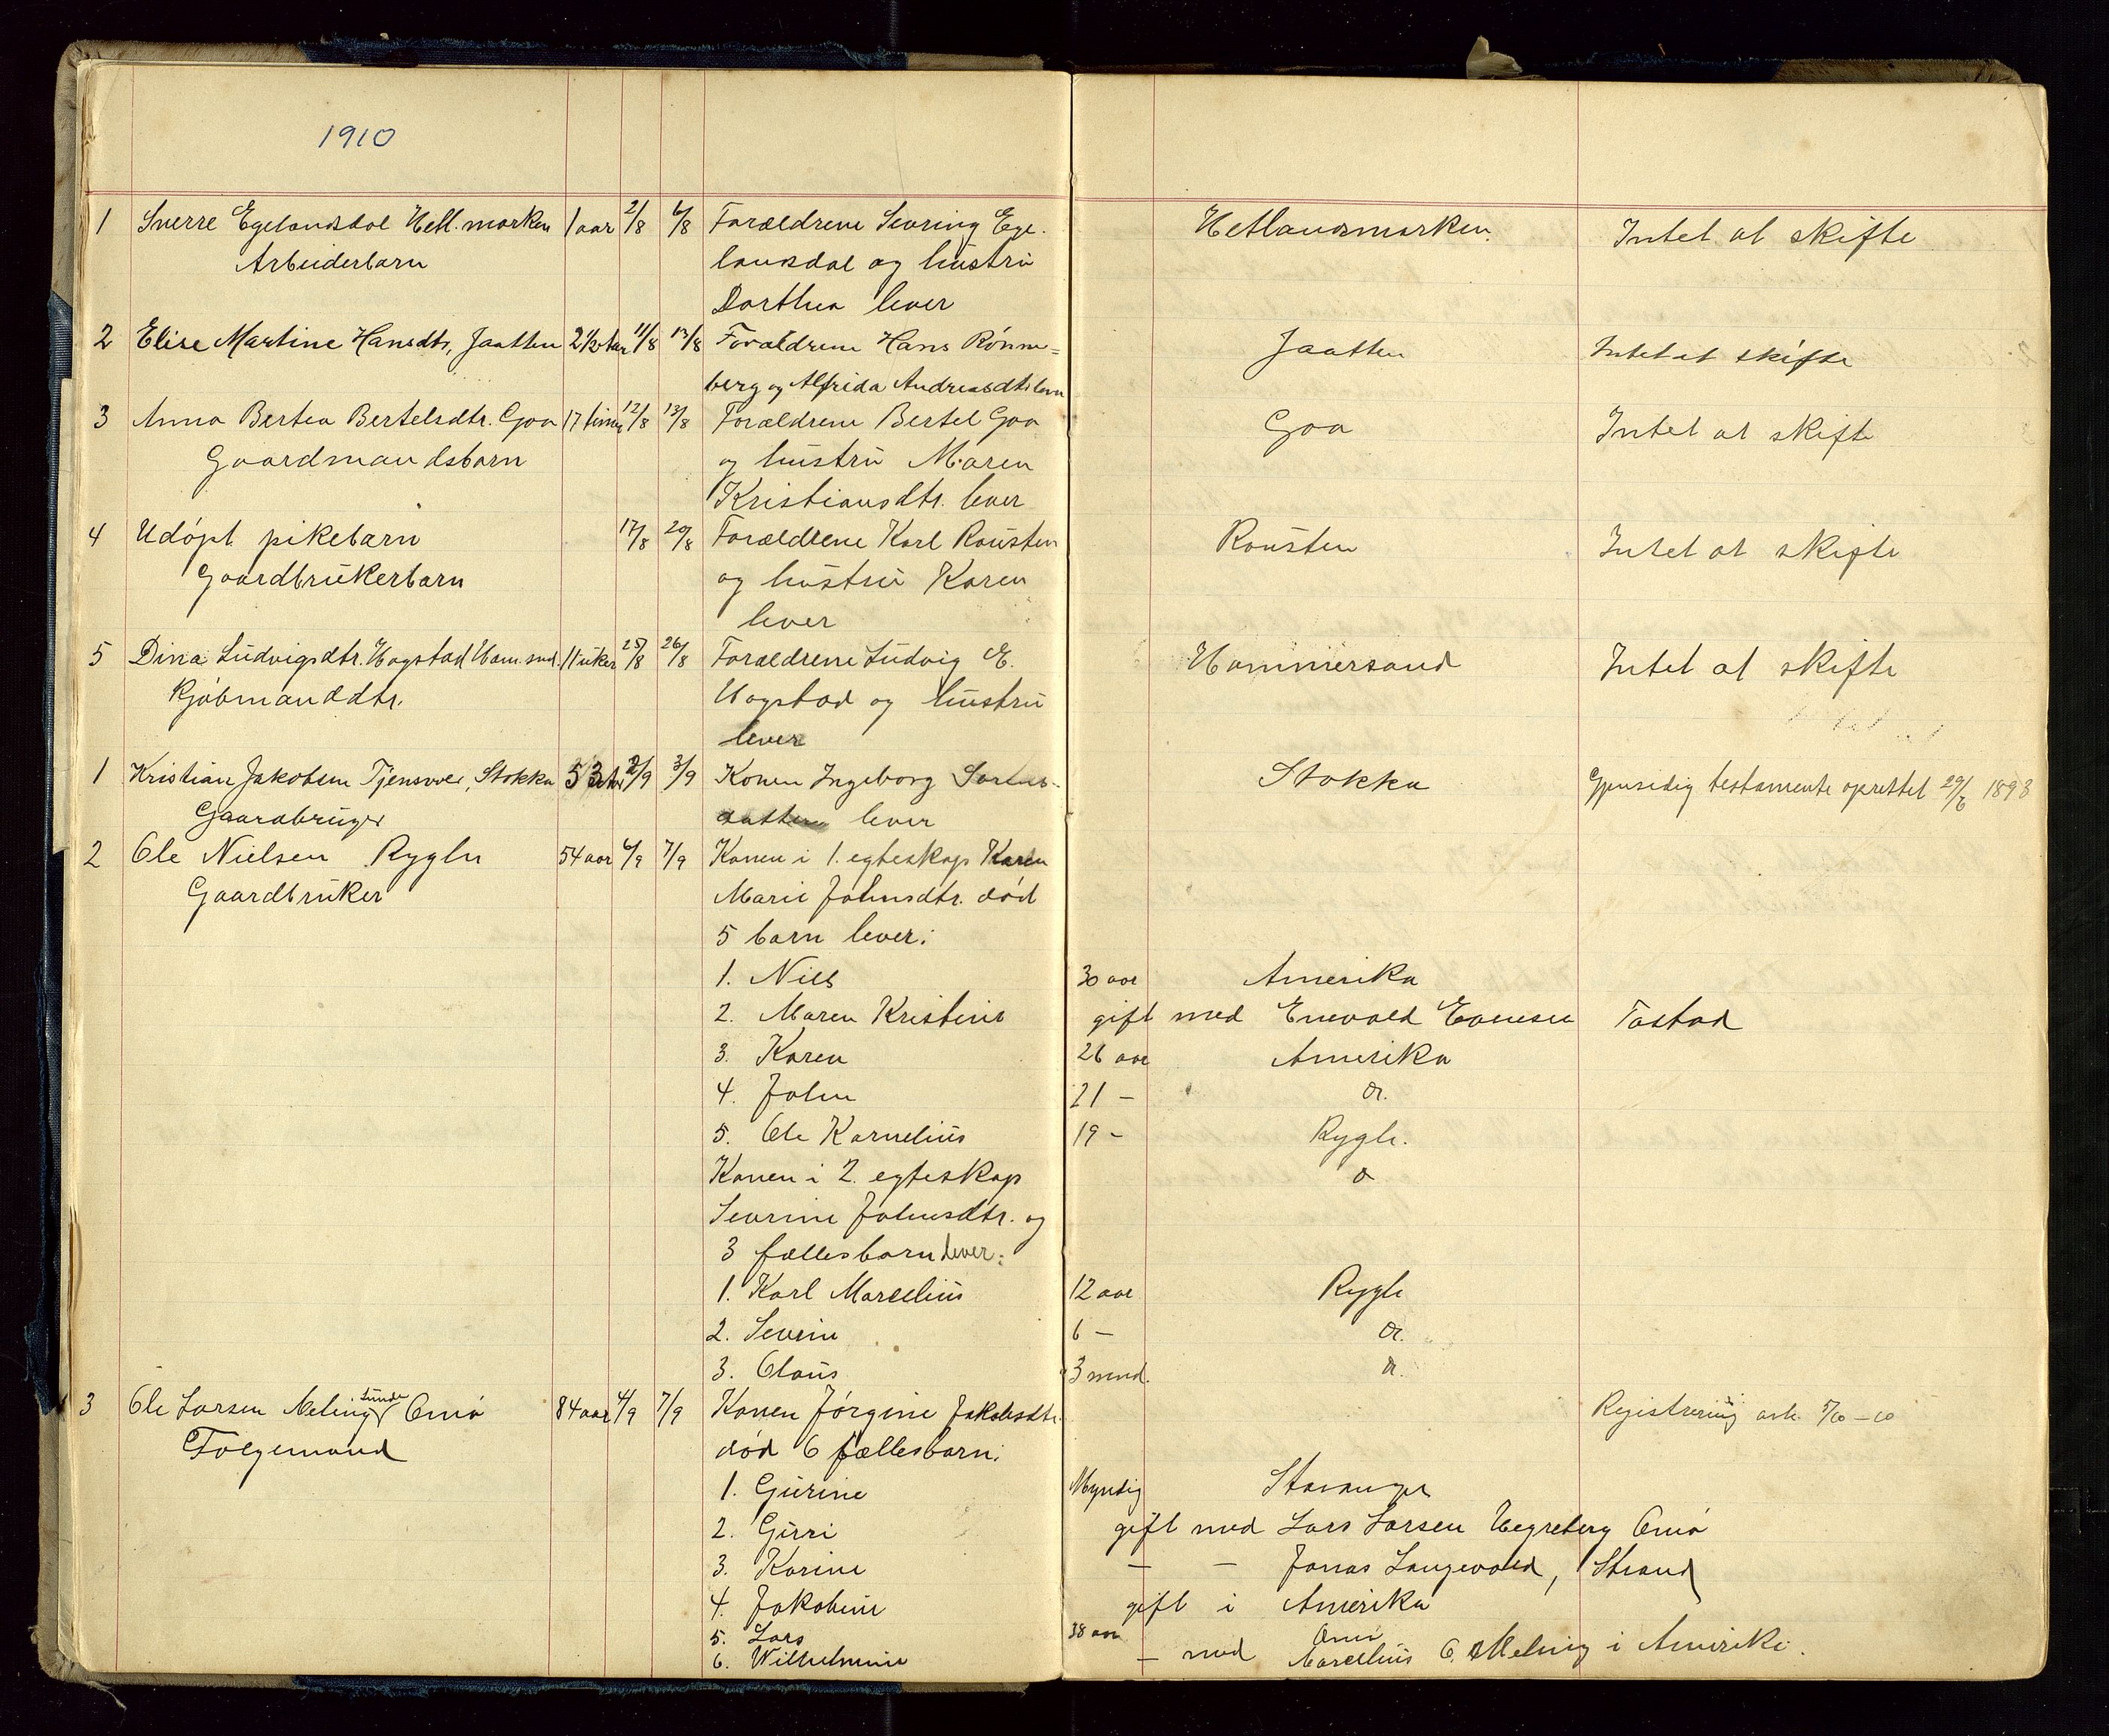 1910
1 Sverre Egelandsdal Hetl.marken 1 aar 2/8 6/8 Forældrene Sevring Ege- Hetlandsmarken. Intet at skifte
Arbeiderbarn landsdal og hustru
Dorthea lever
2 Elise Martine Hansdtr, Jaatten 2 1/2 aar 11/8 13/8 Forældrene Hans Rönne= Jaatten Intet at skifte
berg og Alfrida Andreasdtr lever
3 Anna Bertea Bertelsdtr. Goa 17 timer 12/8 13/8 Forældrene Bertel Goa Goa Intet at skifte
Gaardmandsbarn og hustru Maren
Kristiansdtr. lever
4 Udöpt pikebarn 17/8 20/8 Forældrene Karl Rousten Rousten Intet at skifte
Gaardbrukerbarn og hustru Karen
lever
5 Dina Ludvigsdtr. Hogstad Ham.snd. 11 uker 25/8 26/8 Forældrene Ludvig E. Hommersand Intet at skifte
Kjöbmanddtr. Hogstad og hustru
lever
1 Kristian Jakobsen Tjensvoll, Stokka 53 aar 2/9 3/9 Konen Ingeborg Stokka Gjensidig testamente oprettet 29/6 1893
Gaardbruger datter lever
2 Ole Nielsen Rygh 54 aar 6/9 7/9 Konen i 1. egteskap Karen
Gaardbruker Marie Johnsdtr. död
5 barn lever:
1. Niels 30 aar Amerika
2. Maren Kristine gift med Enevald Evensen Tastad
3. Karen 26 aar Amerika
4. John 21 — do.
5. Ole Kornelius 19 - Rygh.
Konen i 2. egteskap do
Sevrine Johnsdtr. og
3 fællesbarn lever:
1. Karl Marselius 12 aar Rygh
2. Sevrin 6 — do.
3. Olaus 3 mnd. do.
3 Ole Larsen Meling Sunde Omö 84 aar 4/9 7/9 Konen Jörgine Jakobsdtr. Registrering ask. 5/10 - 10
Folgemand död 6 fællesbarn:
1. Gurine Myndig Stavanger
2. Girri gift med Lars Larsen Hegreberg Omö
3. Karine — — Jonas Langevold, Strand
4. Jakobine gift i Amerika
5. Lars 38 aar Omö
6. Wilhelmine — med Marselius O. Meling i Amerika.